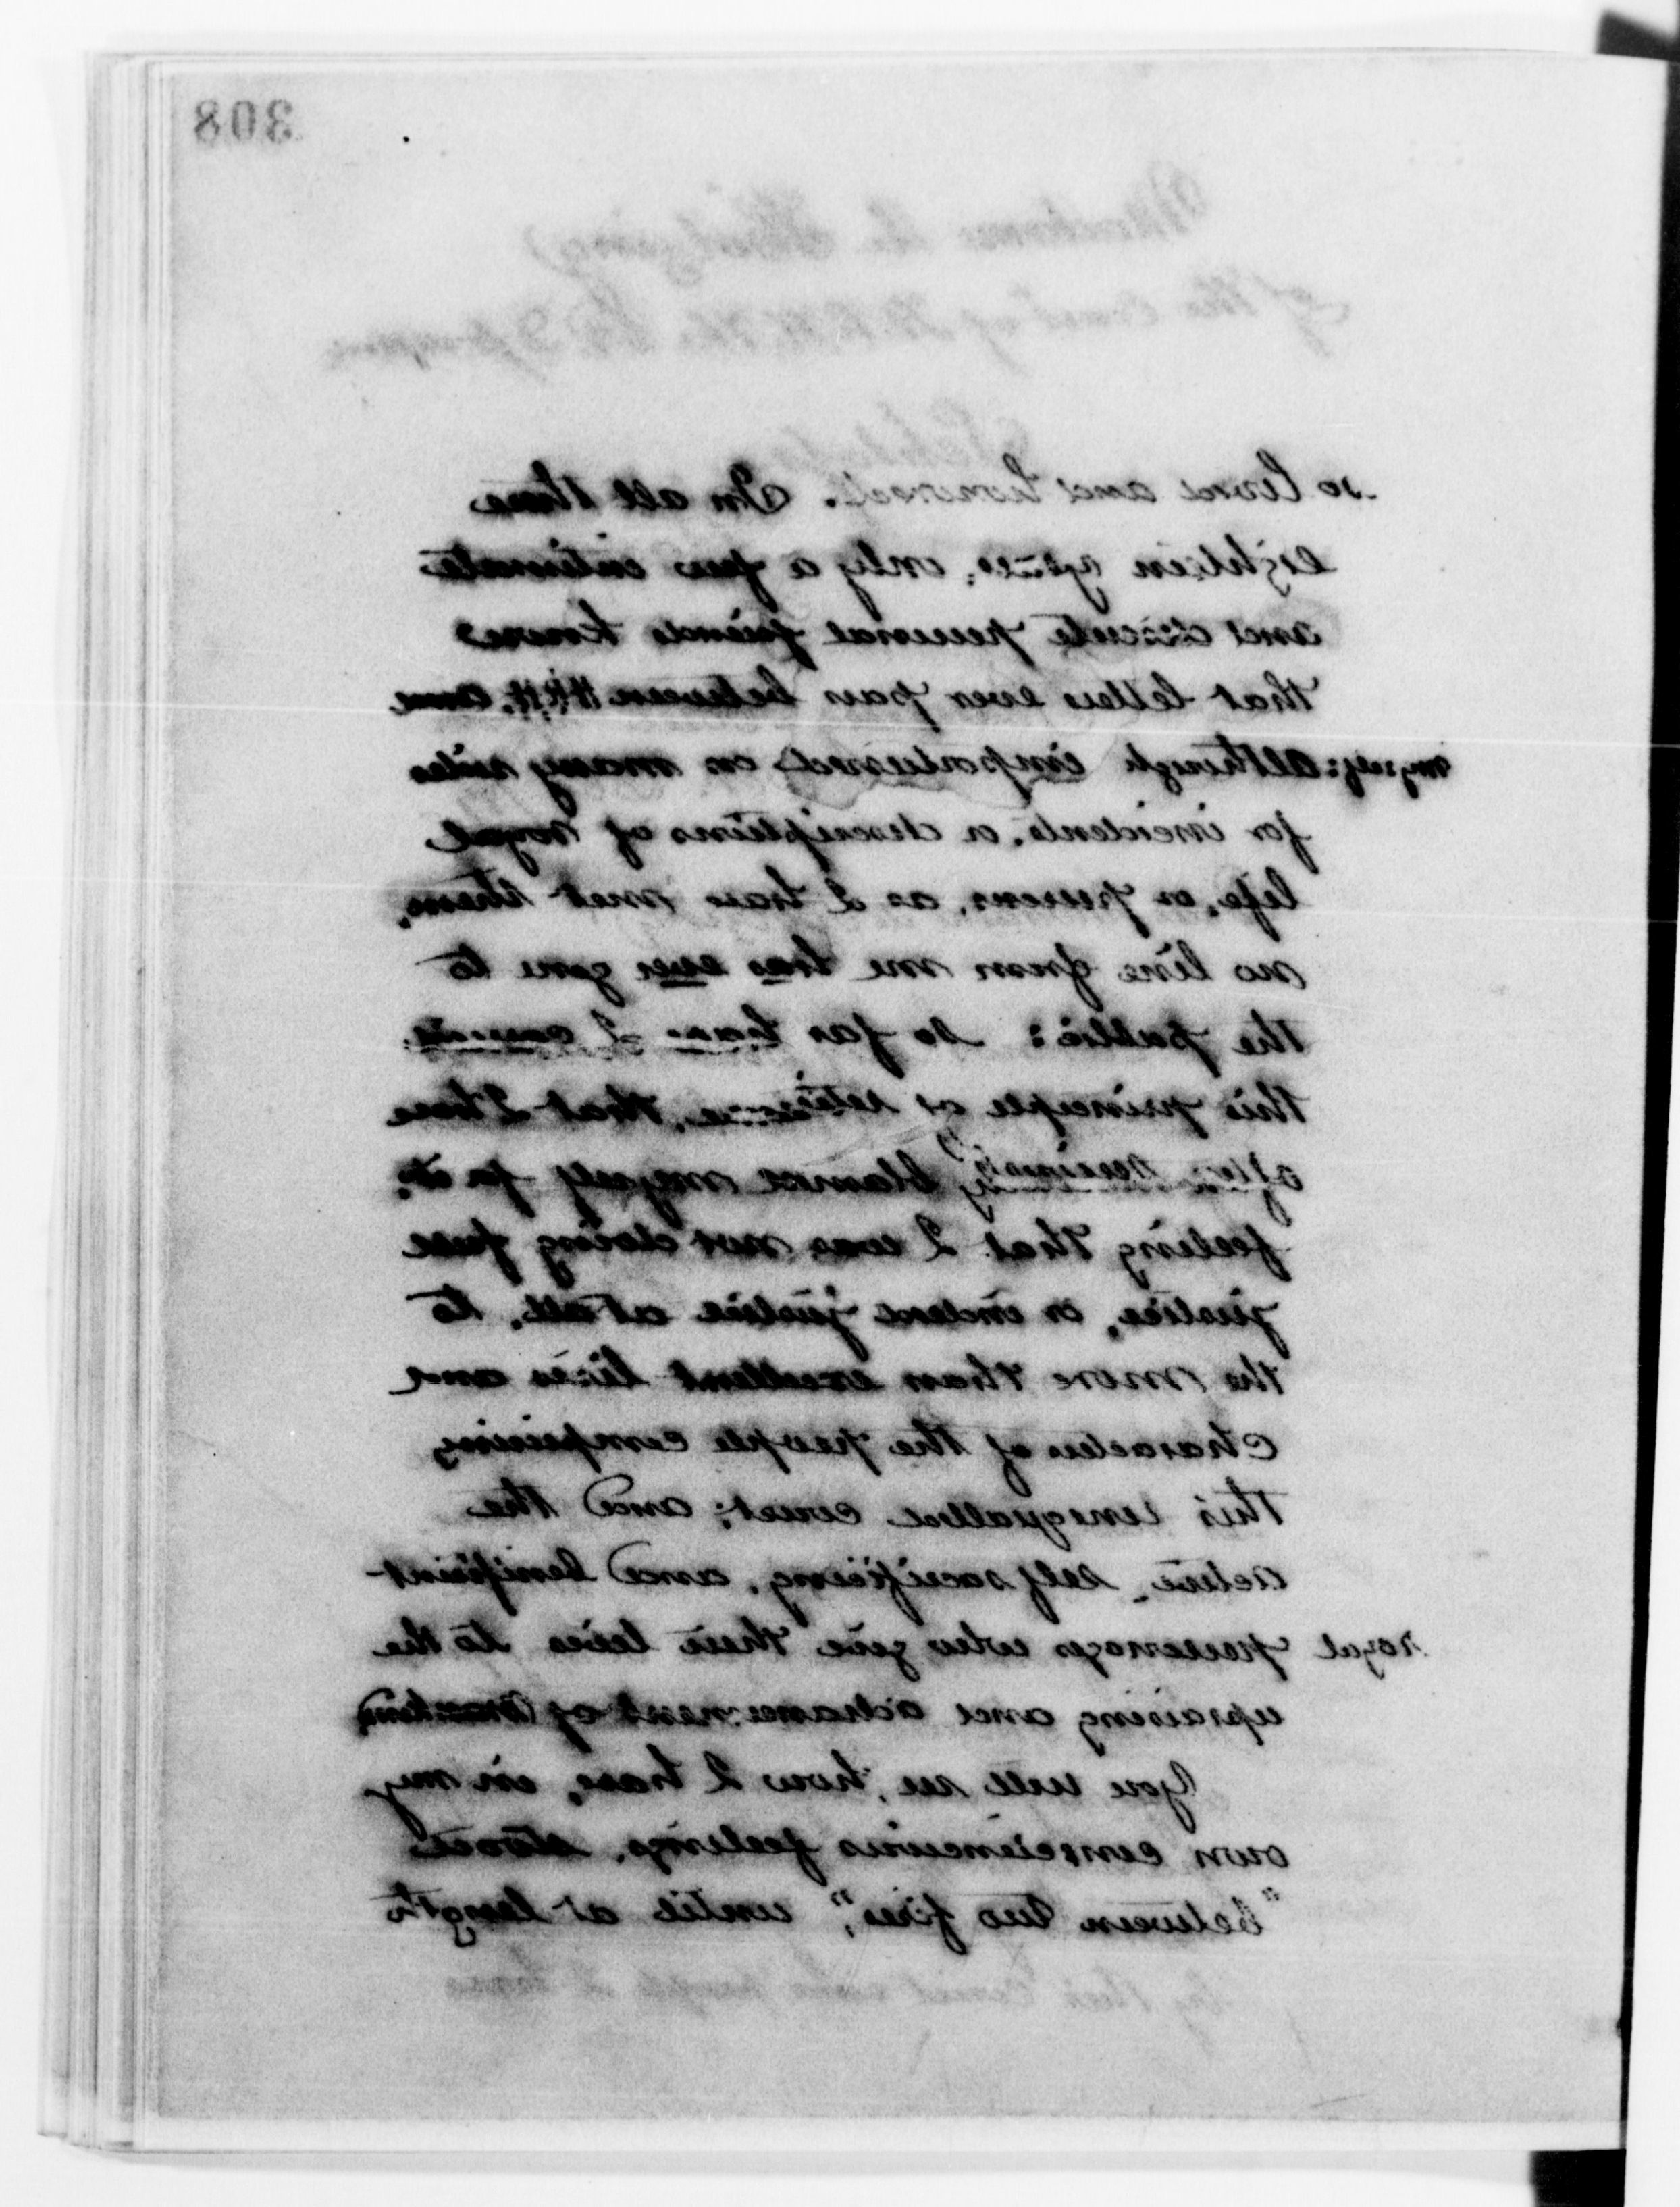 308
so loved and honored. In all these
eighteen years, only a few intimate
and discrete personal friends knowe
that letters ever pass between H.R.H. and
myself: although importuned on many sides
for incidents, or descriptions of royal
life, or persons, as I have met them,
no line from me has ever gone to
the public: so far have I carried
this principle of reticence, that I have
often seriously blamed myself for it:
feeling that I was not doing full
justice, or indeed justice at all, to
the more than excellent lives and
characters of the people comprising
this unequalled court; and the
active, self sacrificing, and benificient
royal personages who give their lives to the
upraising and advancement of
You will see, how I have, in my
own consciencious feelings, stood
"between two fires", until at length